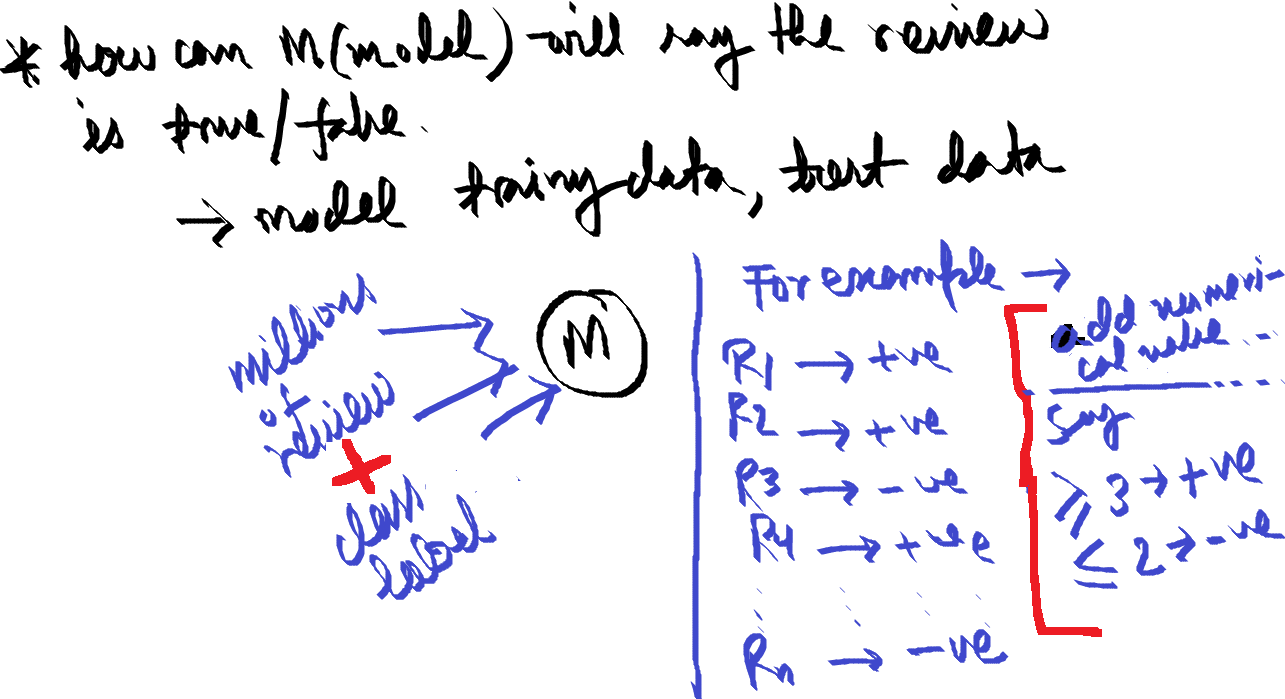 * how can M(model) will say the review
is true/false.
→ model trainy data, test data
millions
of
review
+
class
label
M
For example →
R1 → +ve
R2 → +ve
R3 → -ve
R4 → +ve
Rn → -ve
Add numeri-
cal value ...
Say
≥ 3 → +ve
≤ 2 → -ve